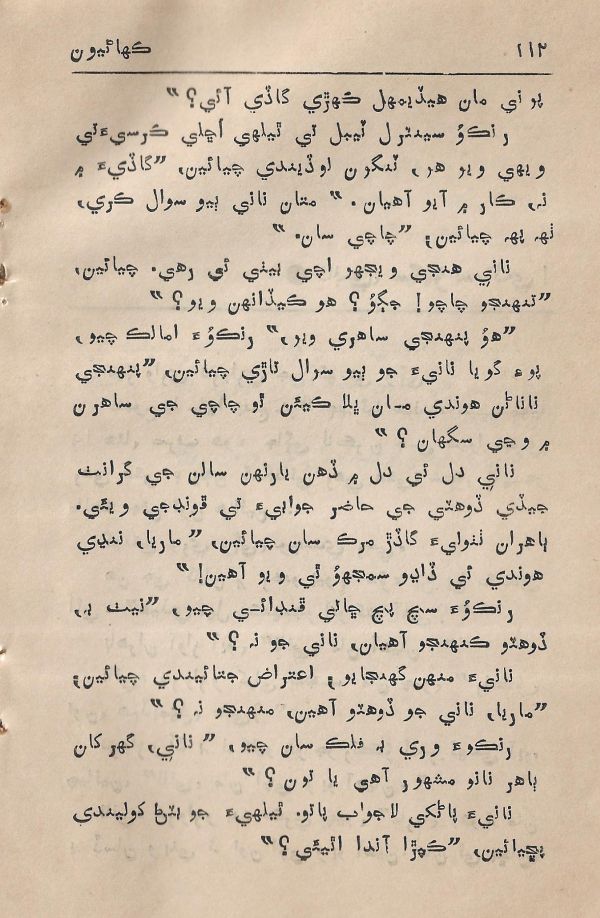 ١١٢ ڪهاڻيون
پو تي مان هيڏيمهل ڪهڙي گاڏي آئي؟“
رنڪوُ سينٽرل ٽيبل تي ٿيلهي اُڇلي ڪرسيءَتي
ويهي ويو هو، ٽنگون لوڏيندي چيائين، ”گاڏيءَ ۾
نہ، ڪار ۾ آيو آهيان.“ متان ناني ٻيو سوال ڪري،
ٺهہ پهہ چيائين؛ ”چاچي سان.“
ناني هنجي ويجهو اچي بيٺي ئي رهي. چيائين،
”تنهنجو چاچو! جڳوُ؟ هو ڪيڏانهن ويو؟“
”هوُ پنهنجي ساهري ويو،“ رنڪوُءَ امالڪ چيو،
پوءِ گويا نانيءَ جو ٻيو سوال تاڙي چيائين، ”پنهنجي
ناناڻن هوندي مان ڀلا ڪيئن ٿو چاچي جي ساهرن
۾ وڃي سگهان؟“
ناني دل ئي دل ۾ ڏهن ٻارنهن سالن جي گرانٺ
جيڏي ڏوهٽي جي حاضر جوابيءَ تي ڦونڊجي ويئي.
ٻاهران نٺوليءَ گاڏڙ مرڪ سان چيائين، ”ماريا، ننڍي
هوندي ئي ڏاڍو سمجهوُ ٿي ويو آهين!“
رنڪوُءَ سڄ پچ ڇاتي ڦنڊائي چيو، ”نيٺ بہ،
ڏوهٽو ڪنهنجو آهيان، ناني جو نہ؟“
نانيءَ منهن گهنجايو؛ اعتراض جتائيندي چيائين؛
”ماريا، ناني جو ڏوهٽو آهين، منهنجو نہ؟“
رنڪوءَ وري بہ فلڪ سان چيو، ”ناني، گهر کان
ٻاهر نانو مشهور آهي يا تون؟“
نانيءَ پاڻکي لاجواب ڀانيو. ٿيلهيءَ جو بٽڻ کوليندي
پڇيائين، ”ڪپڙا آندا اٿيئي؟“